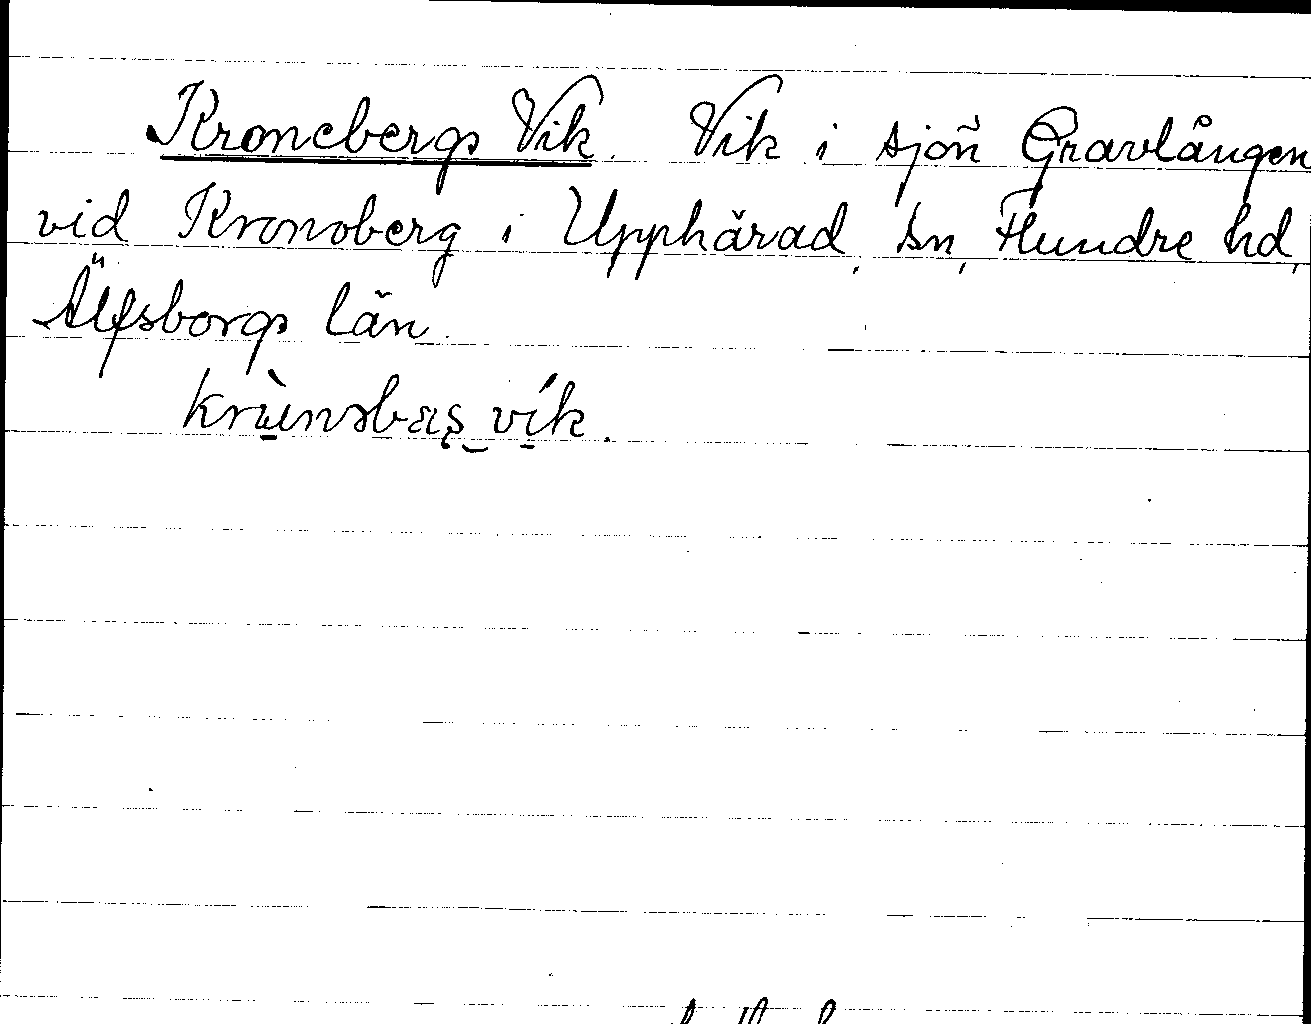 Kronebergs Vik. Vik i sjön Gravlången
vid Kronoberg i Upphärad, sn, Flundre hd,
Älfsborgs län.
vík.